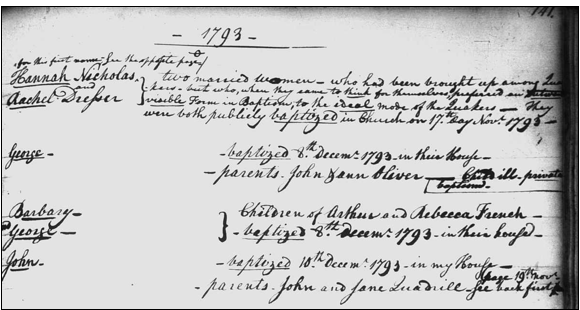 141.
- 1793 -
for this first name, see the opposite page
Hannah Nicholas. } two married women - who had been brought up among Qua
and kers - but who, when they came to think for themselves, preferred an outward
Rachel Dresser visible Form in Baptism, to the ideal mode of the Quakers - They
were both publicly baptized in Church on 17th Day Novr. 1793 -
George - - baptized 8th Decemr. 1793 - in their House -
- parents. John & ann Oliver - Child ill - private
baptism.
Barbary - } Children of Arthur and Rebecca French -
George - - baptized 8th Decemr. 1793 - in their house -
John. - baptized 10th Decemr. 1793 - in my House -
page 19th Novr.
- parents. John and Jane Luadrill - See back first